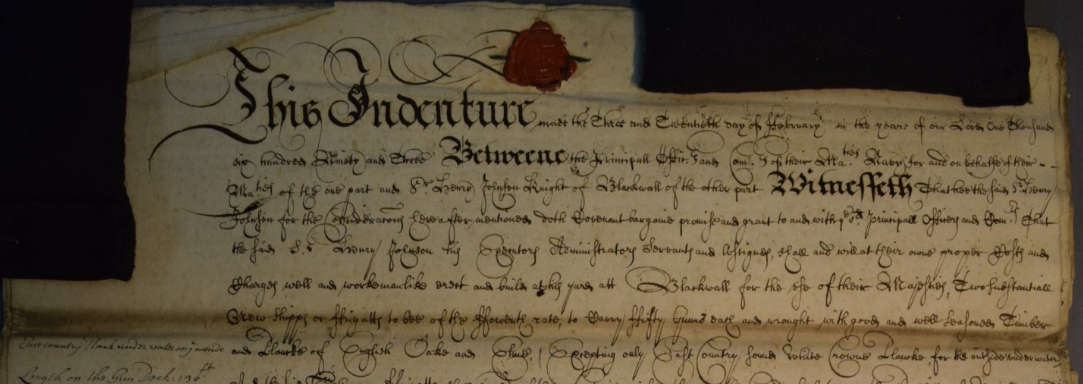 This Indenture made the Three and Twentieth day of February in the yeare of our Lord One Thousand
six hundred Ninety and Three Betweene the Principall Offic.rs and Com.rs of their Ma.ties Navy for and on behalfe of their
Ma.ties of the one part and S.r Henry Johnson Knight of Blackwall of the other part Witnesseth That hee the said S.r Henry
Johnson for the Consideracons hereafter mentioned doth Covenant bargaine promise and grant to and with y.e s.d Principall Officers and Com.rs That
the said S.r Henry Johnson his Executors Administrators Servants and Assignes, shall and will at their owne proper Costs and
Charges well and workmanlike erect and build at his yard att Blackwall for the use of their Majesties, Two substantiall
New Shipps or ffrigatts to bee of the ffourth rate, to Carry ffifty Gunns each and wrought with good and well seasoned Timber
East country Plank under water on y.e outside and Plancke of English Oake and Elme, Excepting only East Country sound white Crowne Plancke for the outside underwater
Length on the Gun Deck. 130 f.t